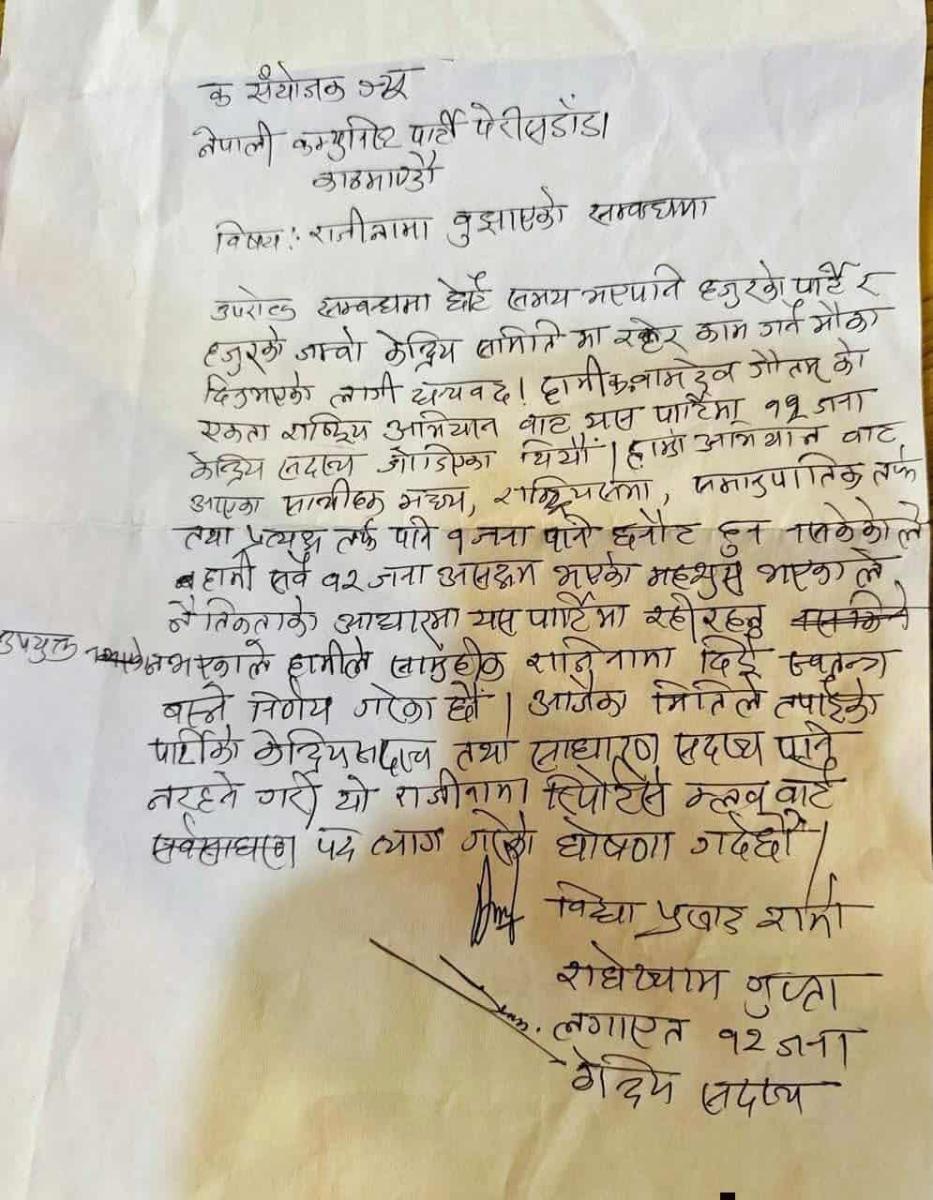 क संयोजक ज्यू
नेपाली कम्युनिष्ट पार्टी पेरीसडाँडा
काठमाण्डौ
विषय: राजीनामा बुझाएको सम्बन्धमा
उपरोक्त सम्बन्धमा छोटै समय भएपनि हजुरको पार्टि र
हजुरको जम्बो केन्द्रिय समिति मा रहेर काम गर्ने मौका
दिनुभएको लागी धन्यवाद। हामी क. बामदेव गौतम को
एकता राष्ट्रिय अभियान बाट यस पार्टिमा १२ जना
केन्द्रिय सदस्य जोडिएका थियौं। हाम्रो अभियान बाट
आएका साथीहरु मध्य, राष्ट्रियसभा, समानुपातिक तर्फ
तथा प्रत्यक्ष तर्फ पनि १ जना पनि छनौट हुन नसकेकोले
हामी सबै १२ जना असक्षम भएको महशुस भएकाले
नैतिकताको आधारमा यस पार्टिमा रहीरहनु
उपयुक्त नभएकाले हामीले सामुहीक राजिनामा दिई स्वतन्त्र
बस्ने निर्णय गरेका छौं। आजैका मितिले तपाईको
पार्टीको केन्द्रिय सदस्य तथा साधारण सदस्य पनि
नरहने गरी यो राजीनामा रिपोर्टर्स क्लब बाट
सर्वसाधारण पद त्याग गरेको घोषणा गर्दछौं।
विद्या प्रसाद शर्मा
राधेश्याम गुप्ता
लगाएत १२ जना
केन्द्रिय सदस्य